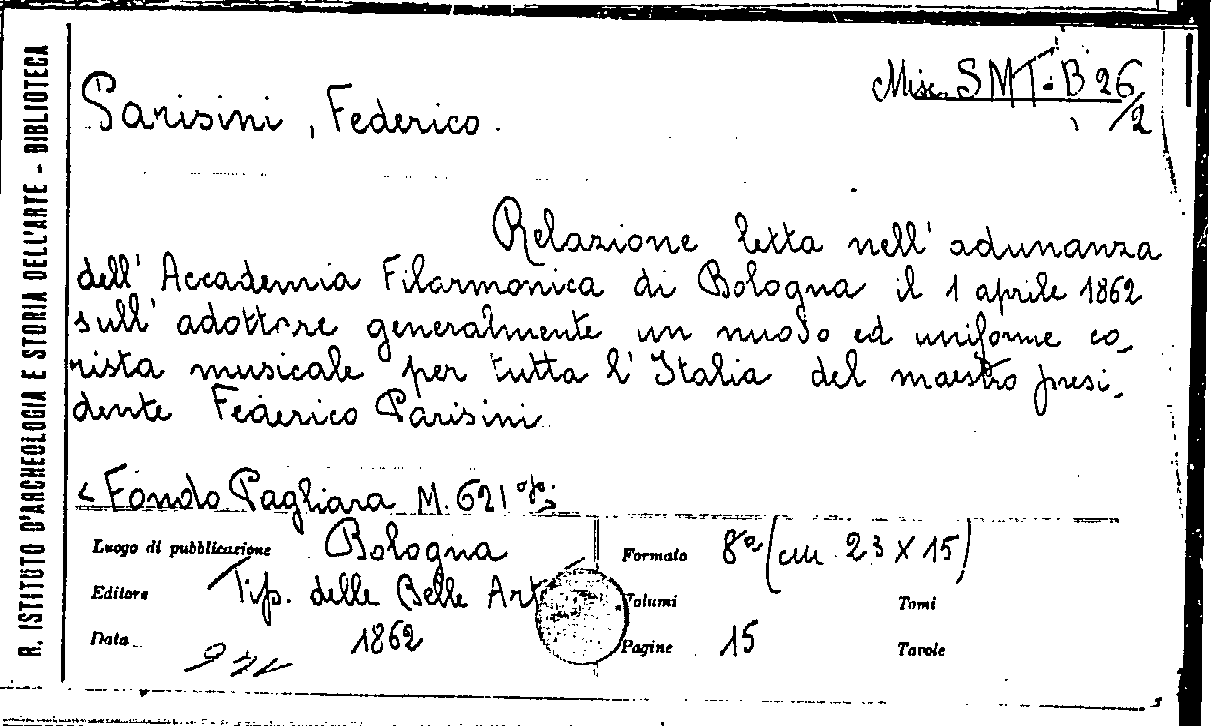 R. ISTITUTO D'ARCHEOLOGIA E STORIA DELL'ARTE - BIBLIOTECA
Misc. SMT. B 26/2
Parisini, Federico.
Relazione letta nell'adunanza
dell'Accademia Filarmonica di Bologna il 1 aprile 1862
sull'adottare generalmente un nuovo ed uniforme co-
rista musicale per tutta l'Italia del maestro presi-
dente Federico Parisini
< Fondo Pagliara M. 621 >
Luogo di pubblicazione Bologna
Formato 8° (cm 23 X 15)
Editore Tip. delle Belle Arti
Volumi Tomi
Data 1862
Pagine 15 Tavole